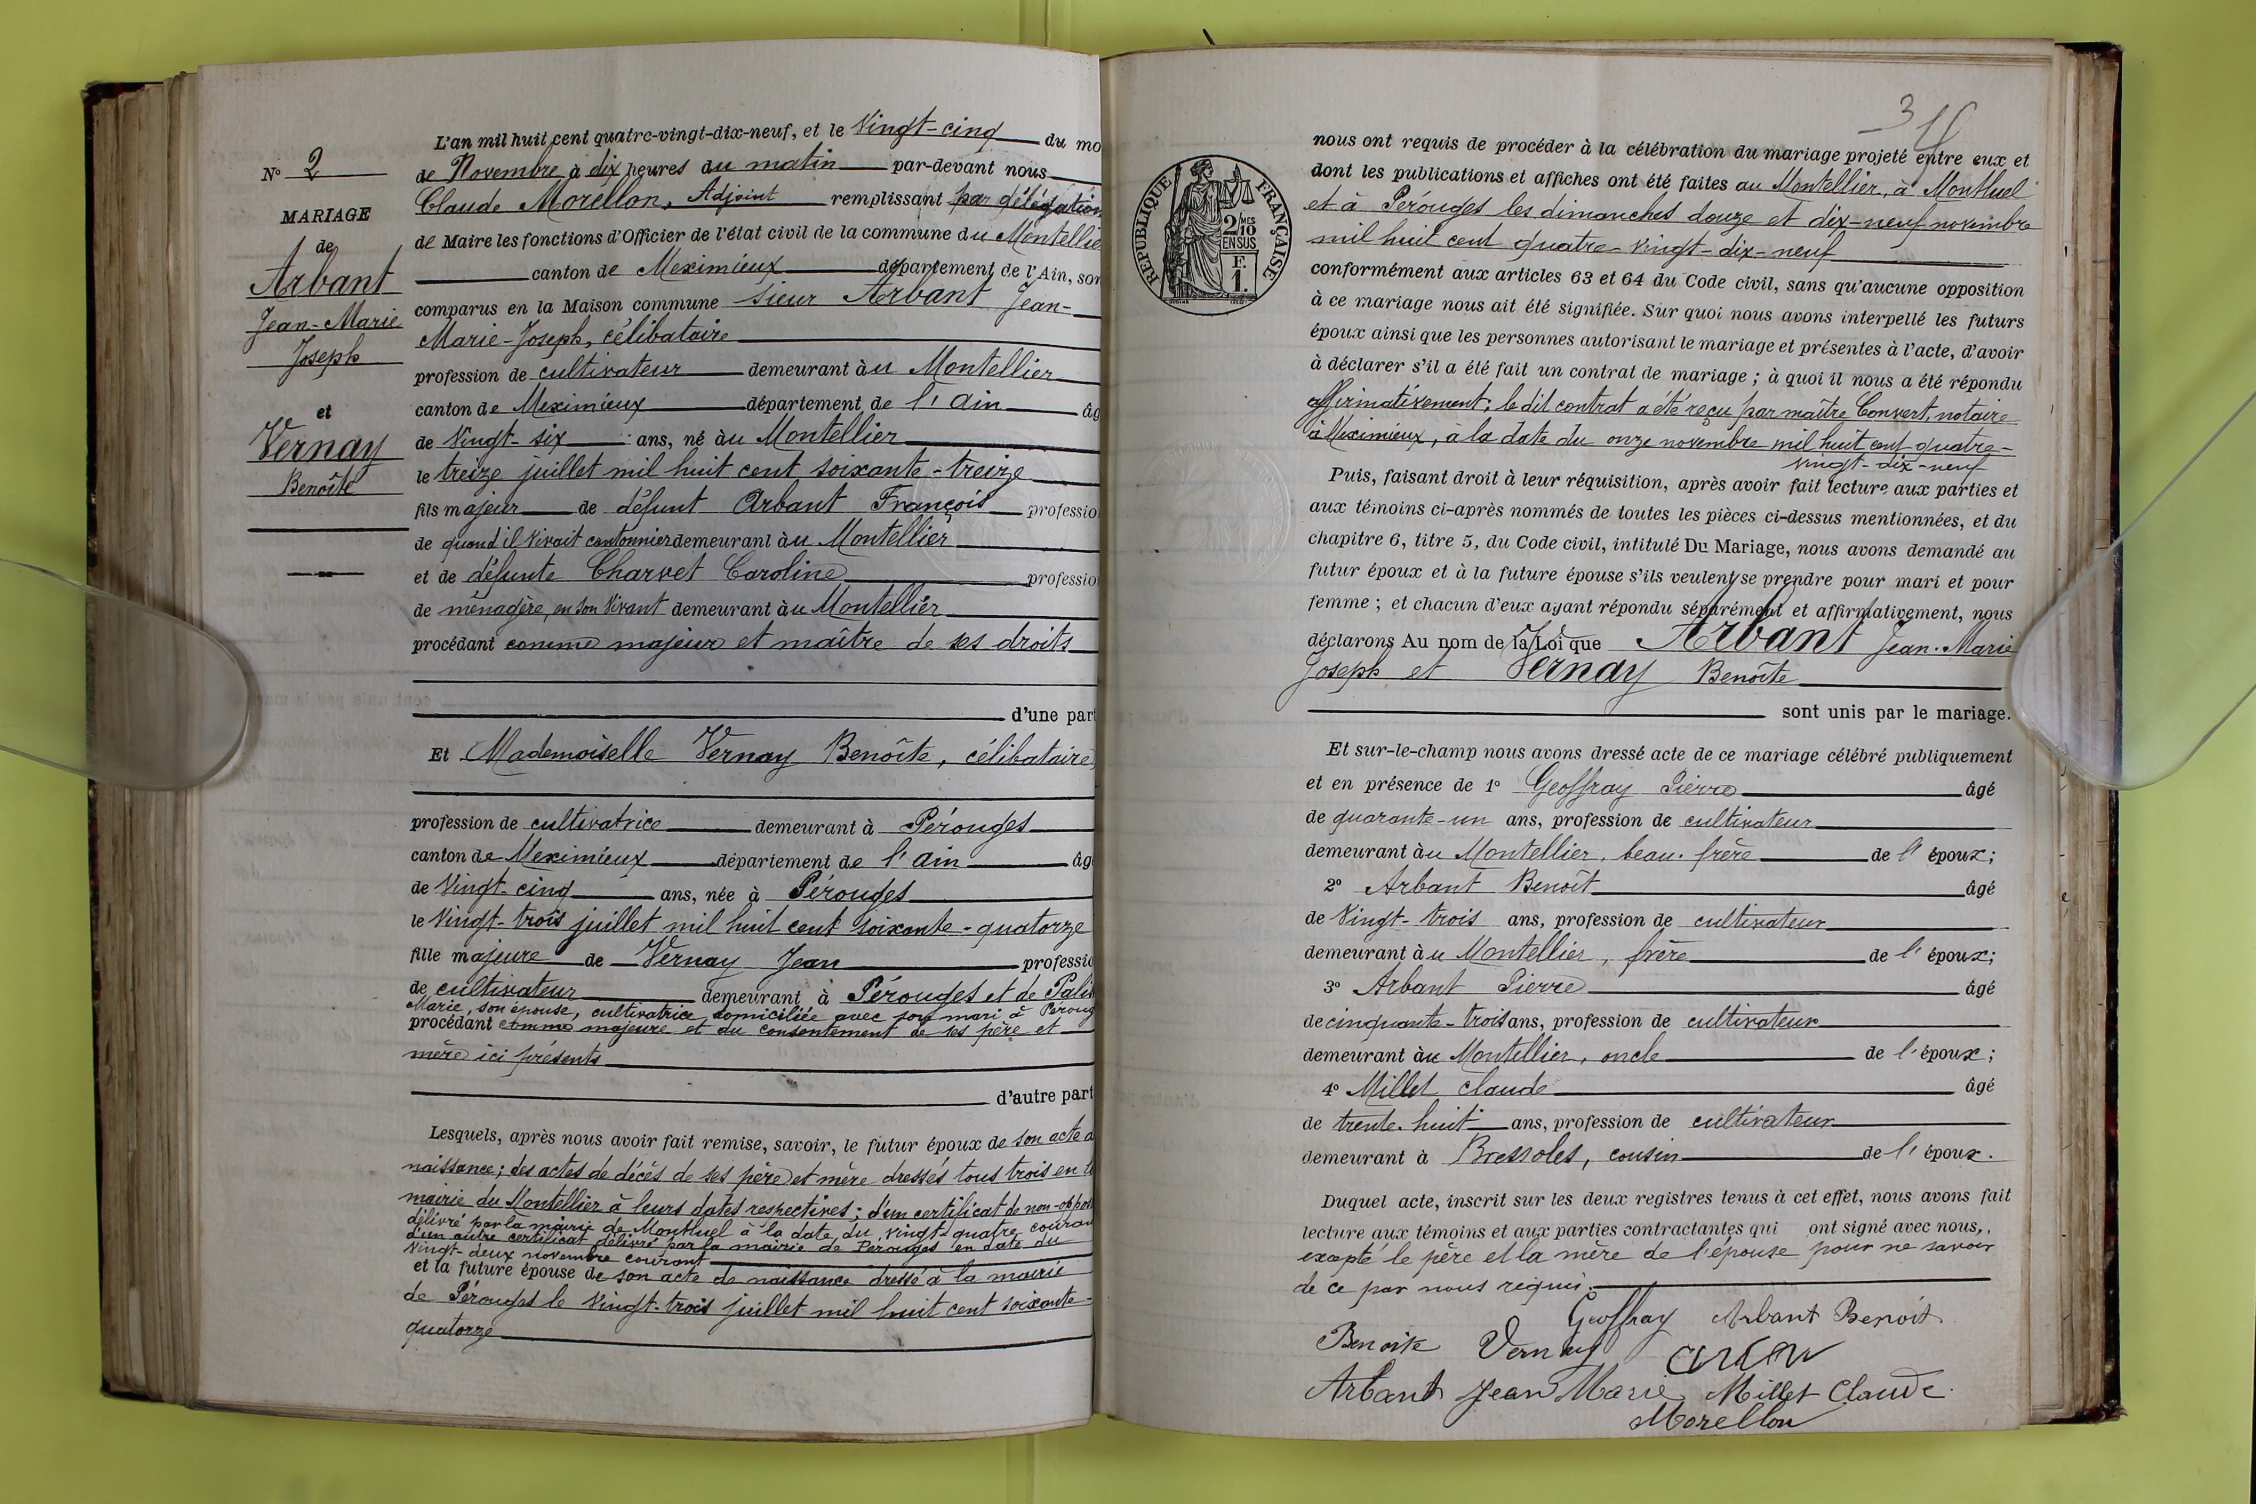 N° 2
MARIAGE
de
Arbant
Jean-Marie
Joseph
et
Vernay
Benoîte
L'an mil huit cent quatre-vingt-dix-neuf, et le Vingt-cinq du mo
de Novembre à dix heures du matin par-devant nous
Claude Morellon, Adjoint remplissant par délégation
de Maire les fonctions d'Officier de l'état civil de la commune du Montellie
canton de Meximieux département de l'Ain, son
comparus en la Maison commune sieur Arbant Jean-
Marie-Joseph, célibataire
profession de cultivateur demeurant àu Montellier
canton de Meximieux département de l'Ain âg
de Vingt-six ans, né àu Montellier
le treize juillet mil huit cent soixante-treize
fils majeur de défunt Arbant François professio
de quand il vivait cantonnier demeurant àu Montellier
et de défunte Charvet Caroline professio
de ménagère, en son vivant demeurant àu Montellier
procédant comme majeur et maître de ses droits
d'une part
Et Mademoiselle Vernay Benoîte, célibataire,
profession de cultivatrice demeurant à Pérouges
canton de Meximieux département de l'Ain âg
de Vingt-cinq ans, née à Pérouges
le Vingt-trois juillet mil huit cent soixante-quatorze
fille majeure de Vernay Jean professio
de cultivateur demeurant à Pérouges et de
Marie, son épouse, cultivatrice, domiciliée avec son mari à Péroug
procédant comme majeure et du consentement de ses père et
mère ici présents
d'autre part
Lesquels, après nous avoir fait remise, savoir, le futur époux de son acte d
naissance; des actes de décès de ses père et mère dressés tous trois en
mairie du Montellier à leurs dates respectives; d'un certificat de non-oppos
délivré par la mairie de Montluel à la date du vingt-quatre couran
d'un autre certificat délivré par la mairie de Pérouges en date du
vingt-deux novembre courant
et la future épouse de son acte de naissance dressé à la mairie
de Pérouges le vingt-trois juillet mil huit cent soixante-
quatorze
3
RÉPUBLIQUE FRANÇAISE
2/10MES
EN SUS
F.
1.
nous ont requis de procéder à la célébration du mariage projeté entre eux et
dont les publications et affiches ont été faites au Montellier, à Montluel
et à Pérouges les dimanches douze et dix-neuf novembre
mil huit cent quatre-vingt-dix-neuf
conformément aux articles 63 et 64 du Code civil, sans qu'aucune opposition
à ce mariage nous ait été signifiée. Sur quoi nous avons interpellé les futurs
époux ainsi que les personnes autorisant le mariage et présentes à l'acte, d'avoir
à déclarer s'il a été fait un contrat de mariage; à quoi il nous a été répondu
affirmativement; le dit contrat a été reçu par maître Convert, notaire
à Meximieux, à la date du onze novembre mil huit cent quatre-
vingt-dix-neuf
Puis, faisant droit à leur réquisition, après avoir fait lecture aux parties et
aux témoins ci-après nommés de toutes les pièces ci-dessus mentionnées, et du
chapitre 6, titre 5, du Code civil, intitulé Du Mariage, nous avons demandé au
futur époux et à la future épouse s'ils veulent se prendre pour mari et pour
femme; et chacun d'eux ayant répondu séparément et affirmativement, nous
déclarons Au nom de la Loi que Arbant Jean-Marie
Joseph et Vernay Benoîte
sont unis par le mariage.
Et sur-le-champ nous avons dressé acte de ce mariage célébré publiquement
et en présence de 1° Geoffray Pierre âgé
de quarante-un ans, profession de cultivateur
demeurant àu Montellier, beau-frère de l'époux;
2° Arbant Benoît âgé
de Vingt-trois ans, profession de cultivateur
demeurant àu Montellier, frère de l'époux;
3° Arbant Pierre âgé
de cinquante-trois ans, profession de cultivateur
demeurant àu Montellier, oncle de l'époux;
4° Millet Claude âgé
de trente-huit ans, profession de cultivateur
demeurant à Bressoles, cousin de l'époux.
Duquel acte, inscrit sur les deux registres tenus à cet effet, nous avons fait
lecture aux témoins et aux parties contractantes qui ont signé avec nous,
excepté le père et la mère de l'épouse pour ne savoir
de ce par nous requis
Geoffray Arbant Benoit
Benoite Vernay
Arbant Jean Marie Millet Claude
Morellon